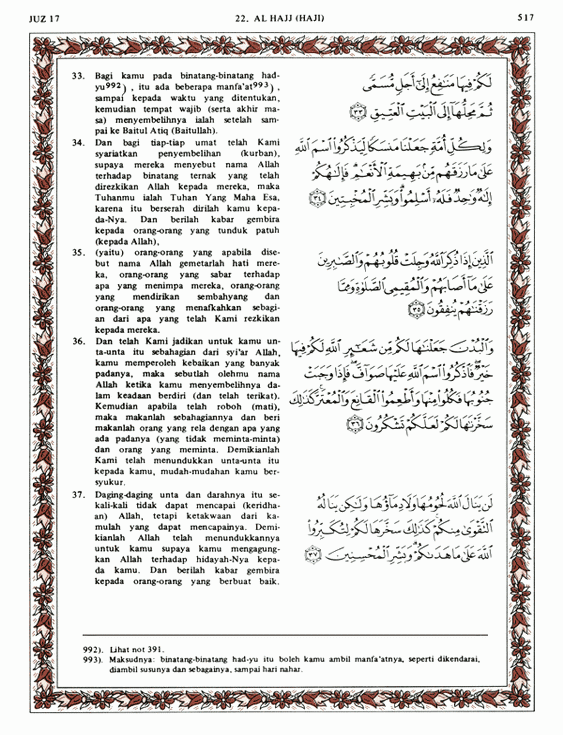 JUZ 17
22. AL HAJJ (HAJI)
517
33. Bagi kamu pada binatang-binatang had-
yu992) , itu ada beberapa manfa'at993) ,
sampai kepada waktu yang ditentukan,
kemudian tempat wajib (serta akhir ma-
sa) menyembelihnya ialah setelah sam-
pai ke Baitul Atiq (Baitullah).
34. Dan bagi tiap-tiap umat telah Kami
syariatkan penyembelihan (kurban),
supaya mereka menyebut nama Allah
terhadap binatang ternak yang telah
direzkikan Allah kepada mereka, maka
Tuhanmu ialah Tuhan Yang Maha Esa,
karena itu berserah dirilah kamu kepa-
da-Nya. Dan berilah kabar gembira
kepada orang-orang yang tunduk patuh
(kepada Allah),
35. (yaitu) orang-orang yang apabila dise-
but nama Allah gemetarlah hati mere-
ka, orang-orang yang sabar terhadap
apa yang menimpa mereka, orang-orang
yang mendirikan sembahyang dan
orang-orang yang menafkahkan sebagi-
an dari apa yang telah Kami rezkikan
kepada mereka.
36. Dan telah Kami jadikan untuk kamu un-
ta-unta itu sebahagian dari syi'ar Allah,
kamu memperoleh kebaikan yang banyak
padanya, maka sebutlah olehmu nama
Allah ketika kamu menyembelihnya da-
lam keadaan berdiri (dan telah terikat).
Kemudian apabila telah roboh (mati),
maka makanlah sebahagiannya dan beri
makanlah orang yang rela dengan apa yang
ada padanya (yang tidak meminta-minta)
dan orang yang meminta. Demikianlah
Kami telah menundukkan unta-unta itu
kepada kamu, mudah-mudahan kamu ber-
syukur.
37. Daging-daging unta dan darahnya itu se-
kali-kali tidak dapat mencapai (keridha-
an) Allah, tetapi ketakwaan dari ka-
mulah yang dapat mencapainya. Demi-
kianlah Allah telah menundukkannya
untuk kamu supaya kamu mengagung-
kan Allah terhadap hidayah-Nya kepa-
da kamu. Dan berilah kabar gembira
kepada orang-orang yang berbuat baik.
لَكُمْ فِيهَا مَنَافِعُ إِلَىٰ أَجَلٍ مُّسَمًّى
ثُمَّ مَحِلُّهَا إِلَى الْبَيْتِ الْعَتِيقِ ﴿٣٣﴾
وَلِكُلِّ أُمَّةٍ جَعَلْنَا مَنسَكًا لِّيَذْكُرُوا اسْمَ اللَّهِ
عَلَىٰ مَا رَزَقَهُم مِّن بَهِيمَةِ الْأَنْعَامِ فَإِلَٰهُكُمْ
إِلَٰهٌ وَاحِدٌ فَلَهُ أَسْلِمُوا وَبَشِّرِ الْمُخْبِتِينَ ﴿٣٤﴾
الَّذِينَ إِذَا ذُكِرَ اللَّهُ وَجِلَتْ قُلُوبُهُمْ وَالصَّابِرِينَ
عَلَىٰ مَا أَصَابَهُمْ وَالْمُقِيمِي الصَّلَاةِ وَمِمَّا
رَزَقْنَاهُمْ يُنفِقُونَ ﴿٣٥﴾
وَالْبُدْنَ جَعَلْنَاهَا لَكُم مِّن شَعَائِرِ اللَّهِ لَكُمْ فِيهَا
خَيْرٌ فَاذْكُرُوا اسْمَ اللَّهِ عَلَيْهَا صَوَافَّ فَإِذَا وَجَبَتْ
جُنُوبُهَا فَكُلُوا مِنْهَا وَأَطْعِمُوا الْقَانِعَ وَالْمُعْتَرَّ كَذَٰلِكَ
سَخَّرْنَاهَا لَكُمْ لَعَلَّكُمْ تَشْكُرُونَ ﴿٣٦﴾
لَن يَنَالَ اللَّهَ لُحُومُهَا وَلَا دِمَاؤُهَا وَلَٰكِن يَنَالُهُ
التَّقْوَىٰ مِنكُمْ كَذَٰلِكَ سَخَّرَهَا لَكُمْ لِتُكَبِّرُوا
اللَّهَ عَلَىٰ مَا هَدَاكُمْ وَبَشِّرِ الْمُحْسِنِينَ ﴿٣٧﴾
992). Lihat not 391.
993). Maksudnya: binatang-binatang had-yu itu boleh kamu ambil manfa'atnya, seperti dikendarai,
diambil susunya dan sebagainya, sampai hari nahar.